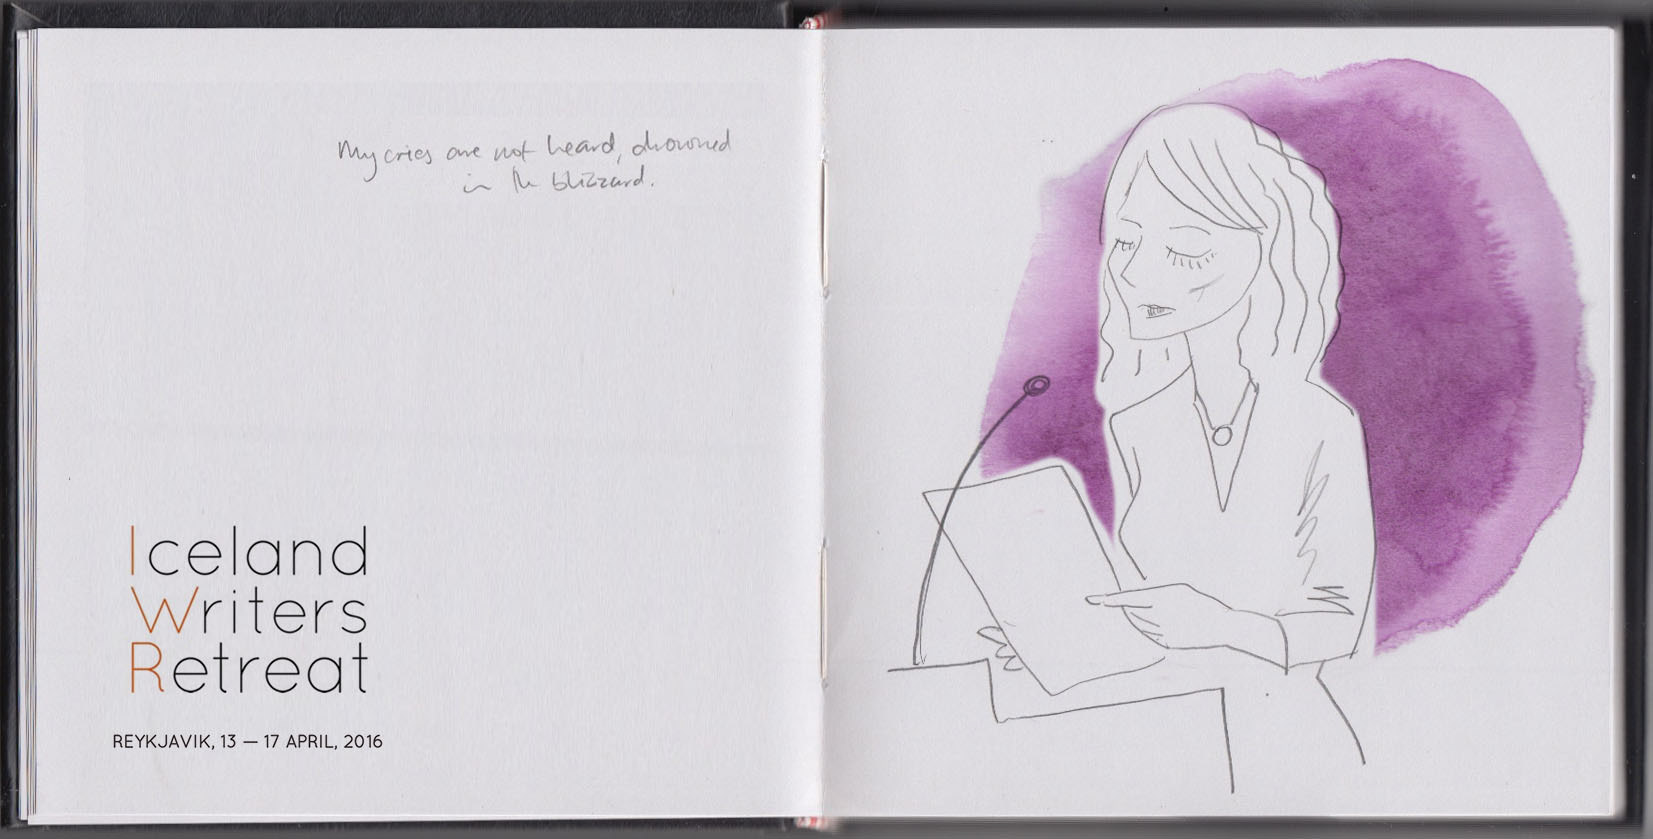 My cries are not heard, drowned
in the blizzard.
Iceland
Writers
Retreat
REYKJAVIK, 13 — 17 APRIL, 2016